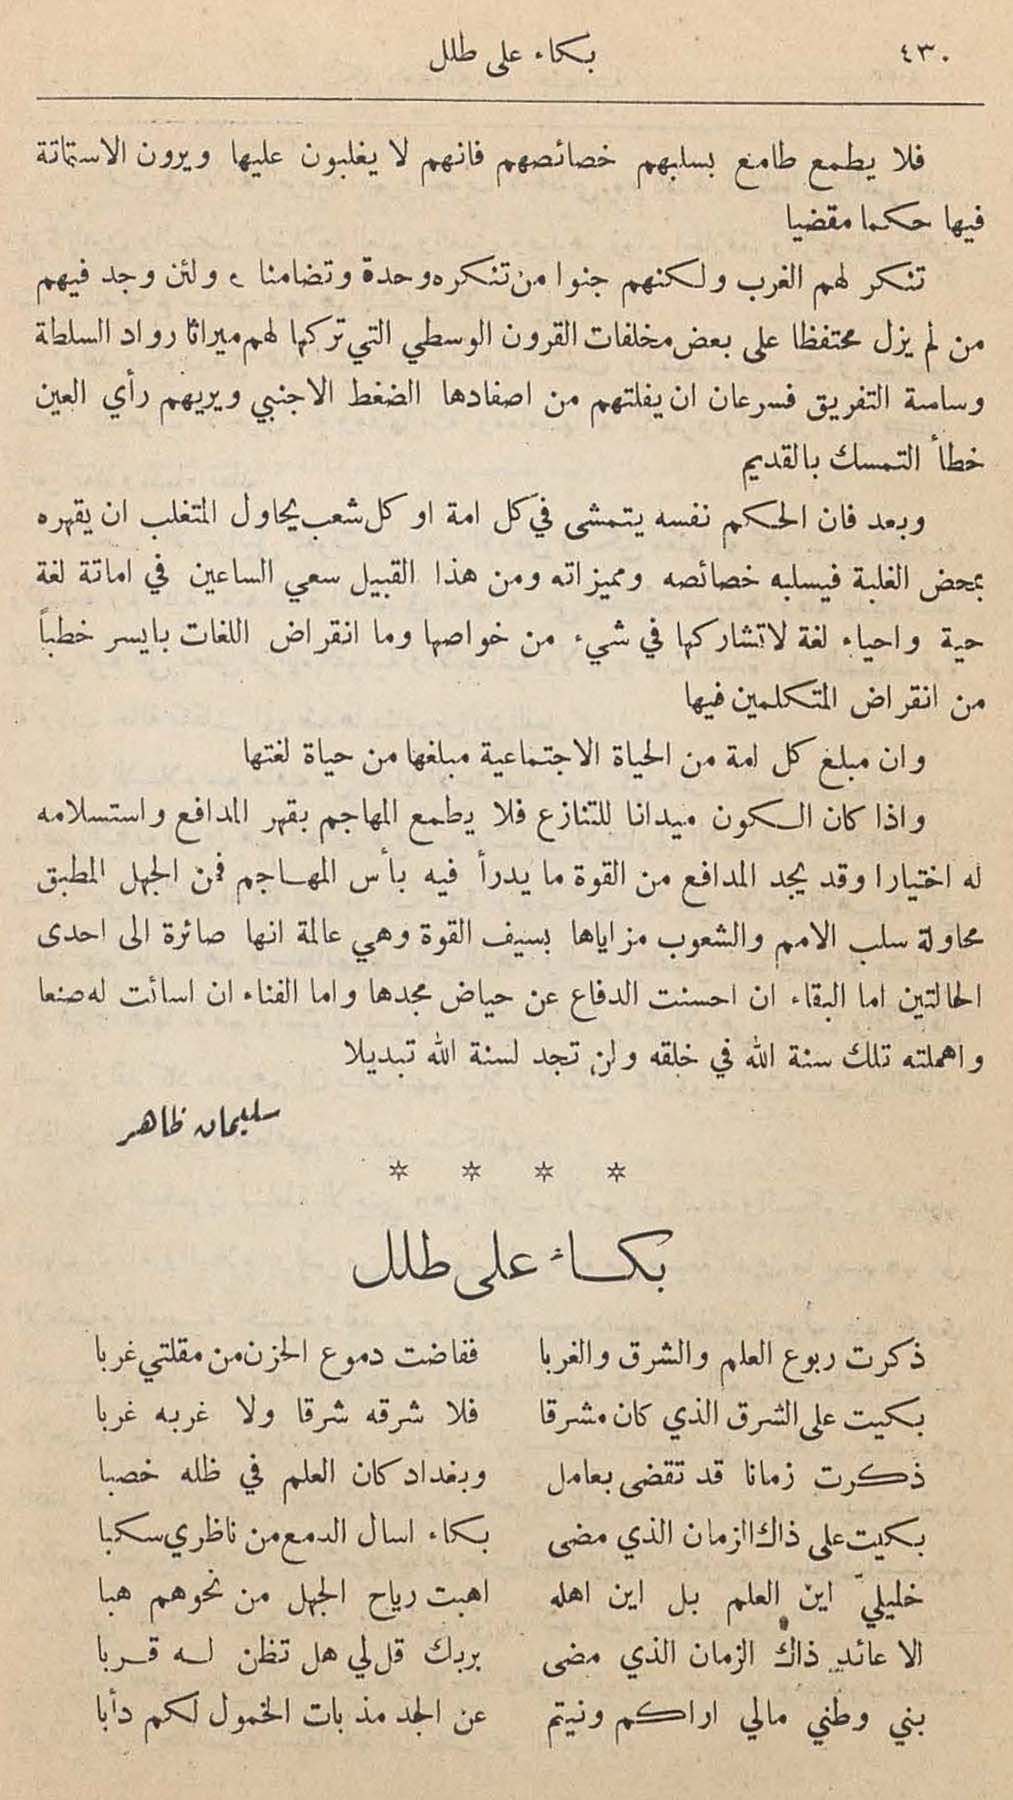 ٤٣٠ بكاء على طلل
فلا يطمع طامع بسلبهم خصائصهم فانهم لا يغلبون عليها ويرون الاستماتة
فيها حكما مقضيا
تنكر لهم الغرب ولكنهم جنوا من تنكره وحدة وتضامنا ، ولئن وجد فيهم
من لم يزل محتفظا على بعض مخلفات القرون الوسطي التي تركها لهم ميراثا رواد السلطة
وساسة التفريق فسرعان ان يفلتهم من اصفادها الضغط الاجنبي ويريهم رأي العين
خطأ التمسك بالقديم
وبعد فان الحكم نفسه يتمشى في كل امة او كل شعب يحاول المتغلب ان يقهره
بمحض الغلبة فيسلبه خصائصه ومميزاته ومن هذا القبيل سعي الساعين في اماتة لغة
حية واحياء لغة لا تشاركها في شيء من خواصها وما انقراض اللغات بايسر خطباً
من انقراض المتكلمين فيها
وان مبلغ كل امة من الحياة الاجتماعية مبلغها من حياة لغتها
واذا كان الكون ميدانا للتنازع فلا يطمع المهاجم بقهر المدافع واستسلامه
له اختيارا وقد يجد المدافع من القوة ما يدرأ فيه بأس المهاجم فمن الجهل المطبق
محاولة سلب الامم والشعوب مزاياها بسيف القوة وهي عالمة انها صائرة الى احدى
الحالتين اما البقاء ان احسنت الدفاع عن حياض مجدها واما الفناء ان اسائت له صنعا
واهملته تلك سنة الله في خلقه ولن تجد لسنة الله تبديلا
سليمان ظاهر
* * * *
بكاء على طلل
ذكرت ربوع العلم والشرق والغربا ففاضت دموع الحزن من مقلتي غربا
بكيت على الشرق الذي كان مشرقا فلا شرقه شرقا ولا غربه غربا
ذكرت زمانا قد تقضى بعامل وبغداد كان العلم في ظله خصبا
بكيت على ذاك الزمان الذي مضى بكاء اسال الدمع من ناظري سكبا
خليليّ اين العلم بل اين اهله اهبت رياح الجهل من نحوهم هبا
الا عائد ذاك الزمان الذي مضى بربك قل لي هل تظن له قربا
بني وطني مالي اراكم ونيتم عن الجد مذ بات الخمول لكم دأبا